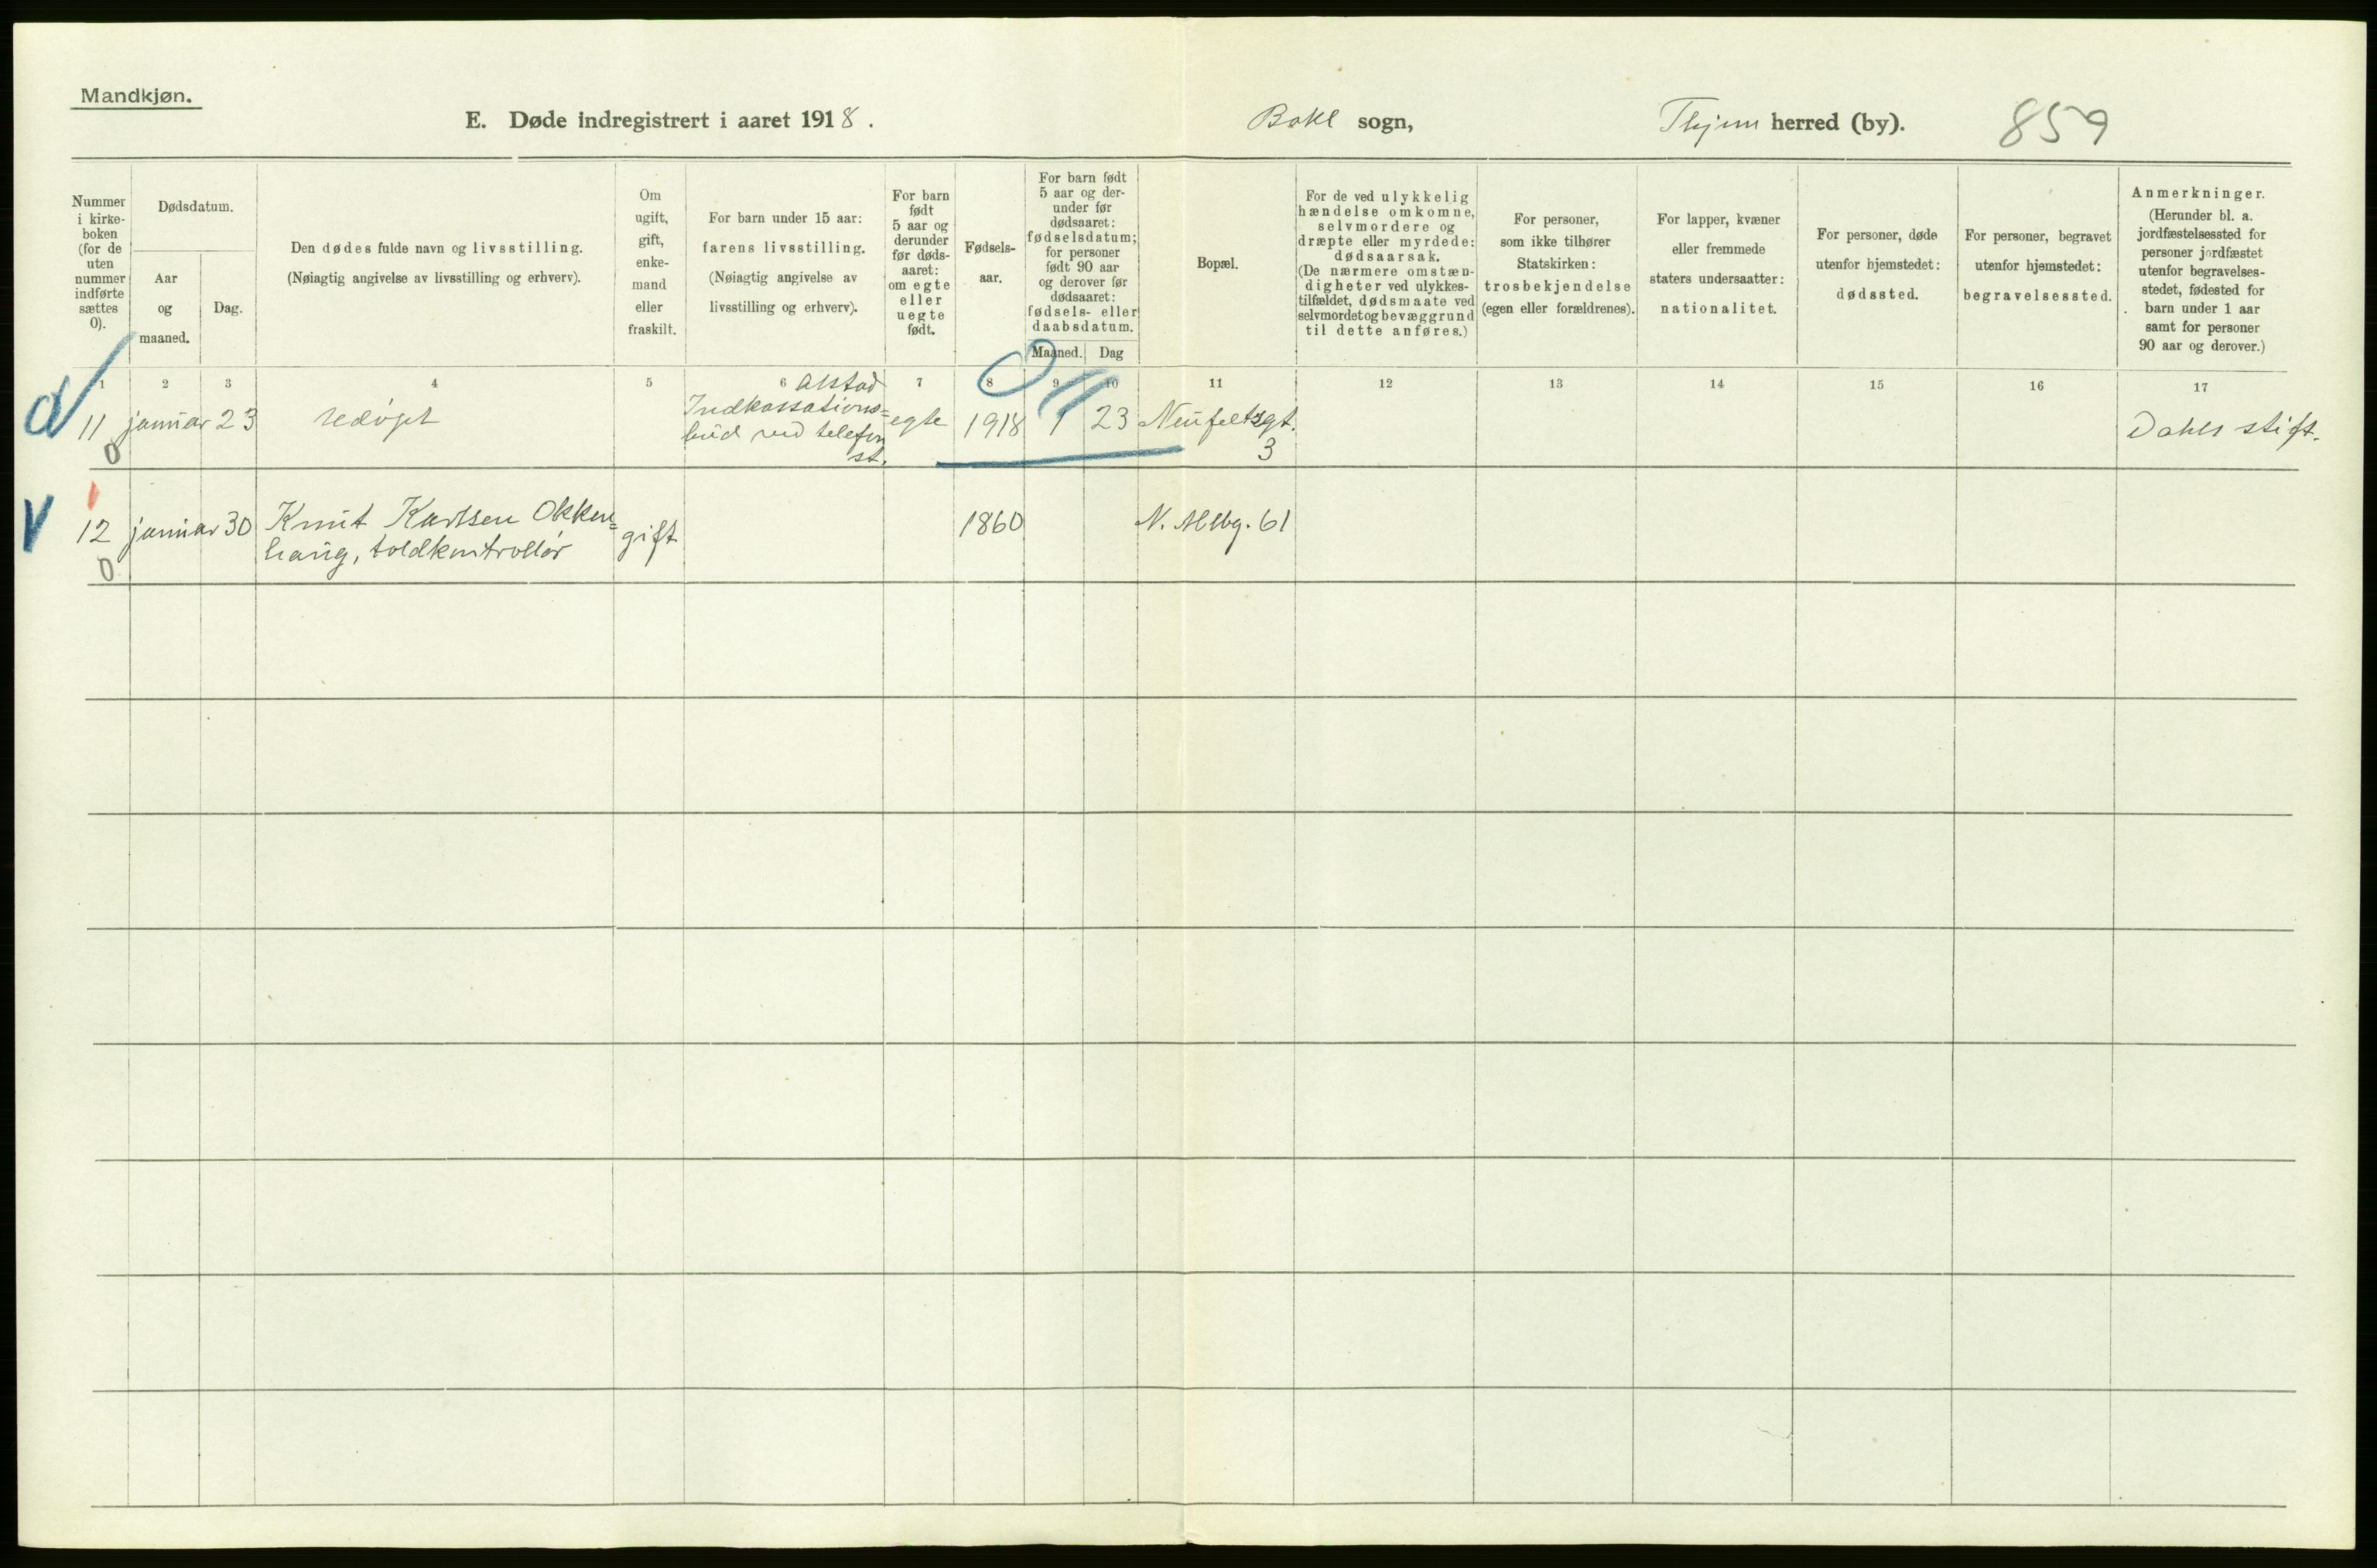 Mandkjøn.
E. Døde indregistrert i aaret 1918.
Bakl sogn,
Thjem herred (by).
859
Nummer
i kirke-
boken
(for de
uten
nummer
indførte
sættes
0).
Dødsdatum.
Aar
og
maaned.
Dag.
Den dødes fulde navn og livsstilling.
(Nøiagtig angivelse av livsstilling og erhverv).
Om
ugift,
gift,
enke-
mand
eller
fraskilt.
For barn under 15 aar:
farens livsstilling.
(Nøiagtig angivelse av
livsstilling og erhverv).
For barn
født
5 aar og
derunder
før døds-
aaret:
om egte
eller
uegte
født.
Fødsels-
aar.
For barn født
5 aar og der-
under før
dødsaaret:
fødselsdatum;
for personer
født 90 aar
og derover før
dødsaaret:
fødsels- eller
daabsdatum.
Maaned.
Dag
Bopæl.
For de ved ulykkelig
hændelse omkomne,
selvmordere og
dræpte eller myrdede:
dødsaarsak.
(De nærmere omstæn-
digheter ved ulykkes-
tilfældet, dødsmaate ved
selvmordet og bevæggrund
til dette anføres.)
For personer,
som ikke tilhører
Statskirken:
trosbekjendelse
(egen eller forældrenes).
For lapper, kvæner
eller fremmede
staters undersaatter:
nationalitet.
For personer, døde
utenfor hjemstedet:
dødssted.
For personer, begravet
utenfor hjemstedet:
begravelsessted.
Anmerkninger.
(Herunder bl. a.
jordfæstelsessted for
personer jordfæstet
utenfor begravelses-
stedet, fødested for
barn under 1 aar
samt for personer
90 aar og derover.)
1 2 3 4 5 6 7 8 9 10 11 12 13 14 15 16 17
11 januar 23 udøpt
Alstad
Indkassations=
bud ved telefon
st.
egte 1918 1 23 Neufeltsgt.
3
Dahls stift.
0
12 januar 30 Knut Karlsen Okken=
haug, toldkontrollør
gift 1860 N. Allbg. 61
0